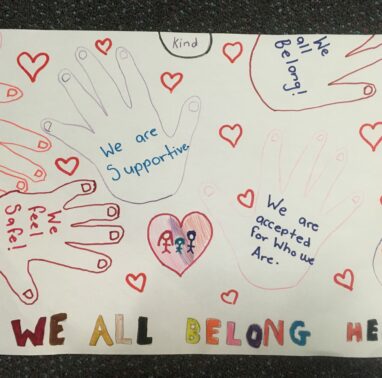 Kind
We
all
Belong!
We are
Supportive
We
feel
Safe!
We are
accepted
for Who we
Are.
WE ALL BELONG HE